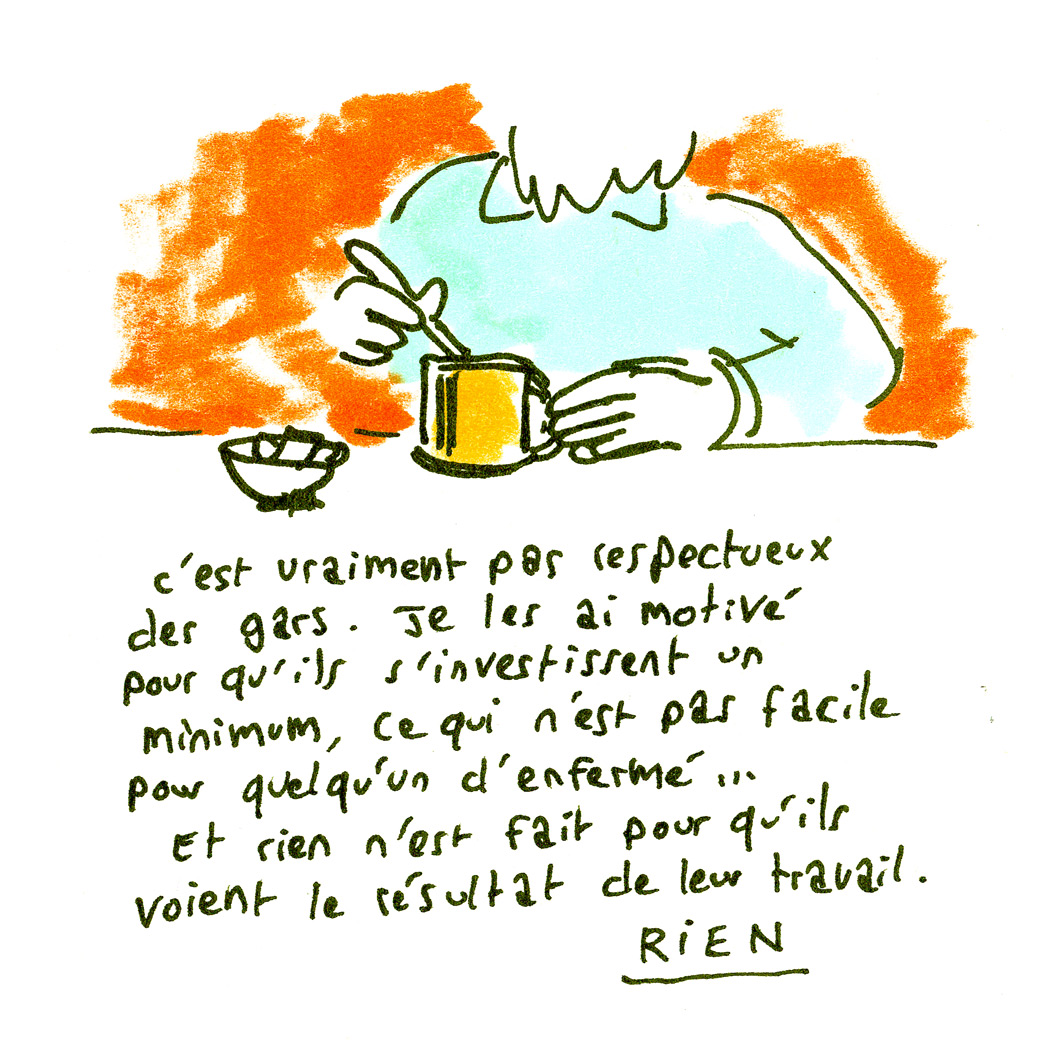 c'est vraiment pas respectueux
des gars. Je les ai motivé
pour qu'ils s'investissent un
minimum, ce qui n'est pas facile
pour quelqu'un d'enfermé...
Et rien n'est fait pour qu'ils
voient le résultat de leur travail.
RiEN